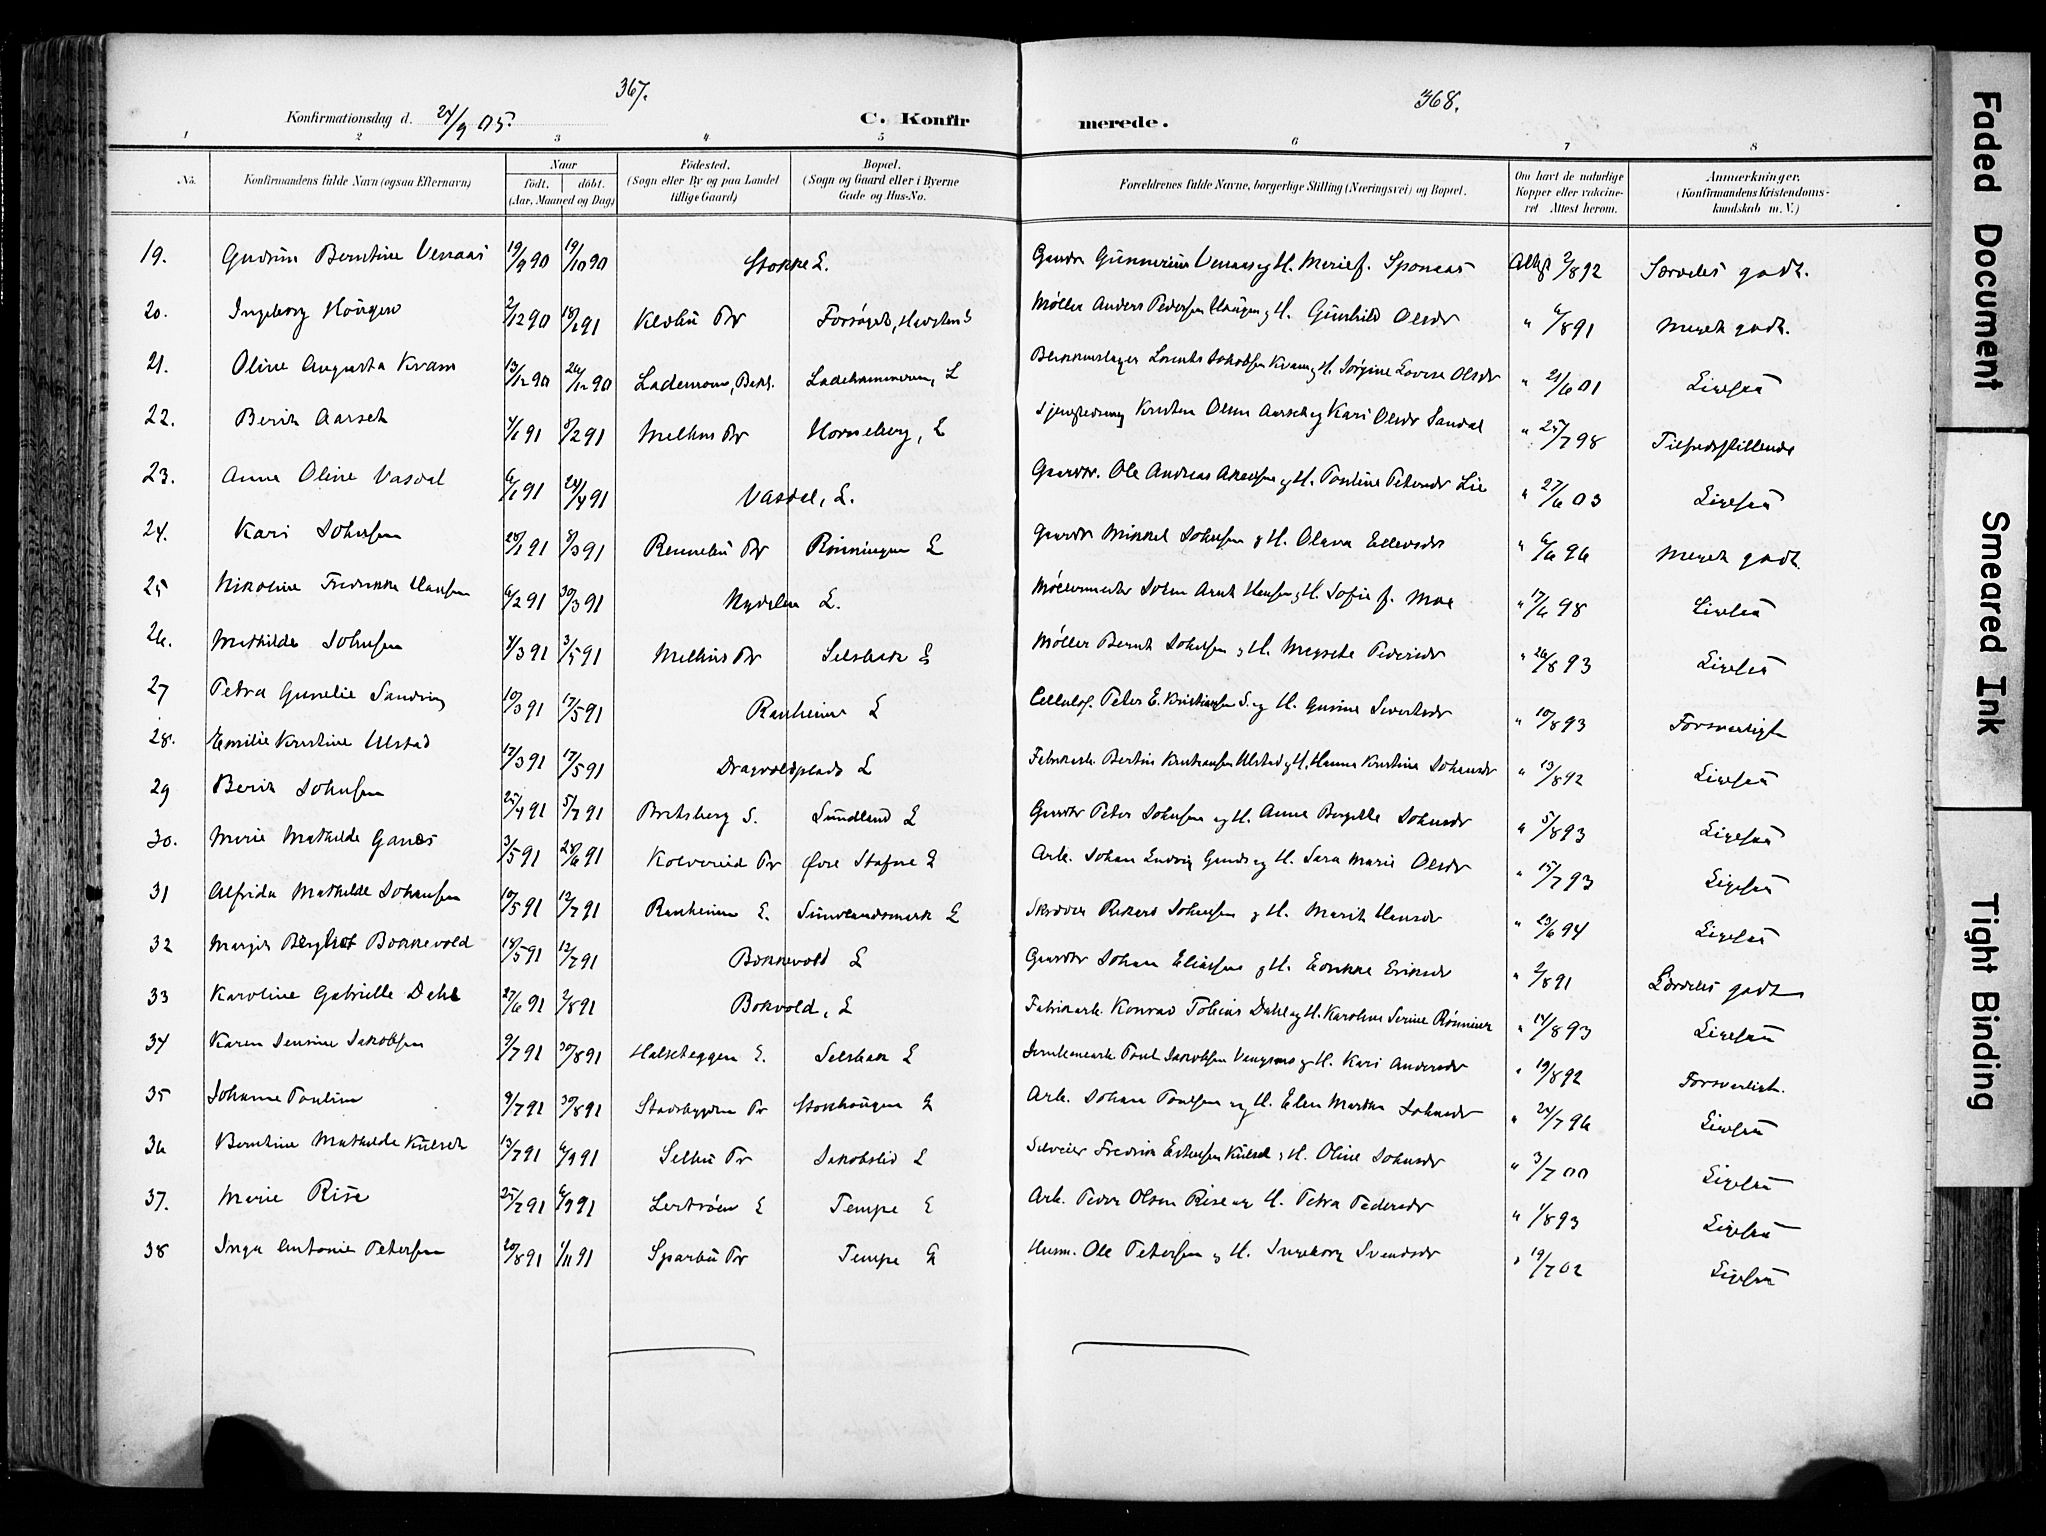 367.
368.
Konfirmationsdag d. 24/9 05.
C. Konfirmerede.
1 2 3 4 5 6 7 8
No.
Konfirmandens fulde Navn (ogsaa Efternavn)
Naar
födt. döbt.
(Aar, Maaned og Dag)
Födested.
(Sogn eller By og paa Landet
tillige Gaard)
Bopæl.
(Sogn og Gaard eller i Byerne
Gade og Hus-No.
Forældrenes fulde Navne, borgerlige Stilling (Næringsvei) og Bopæl.
Om havt de naturlige
Kopper eller vaccine-
ret Attest herom.
Anmærkninger.
(Konfirmandens Kristendoms-
kundskab m. V.)
19. Gudrun Berntine Venaas 19/9 90 19/10 90 Stokke E. Gunnerius Venaas og H. Merie f. Sponaas 2/8 92 Særdeles godt.
20. Ingeborg Haugen 2/12 90 18/1 91 Klæbu Pr Møller Anders Pedersen Haugen og H. Gunhild Olsdr " 6/8 91 Meget godt.
21. Oline Augusta Kvam 13/12 90 26/12 90 Lademoen, Bakl. Ladehammeren, E Blikkenslager Lorents Jakobsen Kvam og H. Jørgine Lovise Olsdr " 21/6 01 Ligesaa
22. Berit Aarset 4/1 91 8/2 91 Melhus Pr Horneberg, E Kristen Olsen Aarset og Kari Olsdr Sandal " 25/7 98 Tilfredsstillende
23. Anna Oline Vasdal 6/1 91 24/4 91 Vasdal, E. Gaardbr. Ole Andreas og H. Pauline Petersdr Lie " 27/6 03 Ligesaa
24. Kari Johnsen 28/1 91 8/3 91 Rennebu Pr Rønningen E Gaardbr Mikkel Johnsen og H. Olava Ellevsdr " 6/6 96 Meget godt.
25 Nikoline Fredrikke Hansen 6/2 91 30/3 91 Nydalen E. Møllermester John Arnt Hansen og H. Sofie f. Moe " 17/6 98 Ligesaa
26. Mathilde Johnsen 4/3 91 3/5 91 Melhus Pr Selsbak E Møller Bernt Johnsen og H. Pedersdr " 26/8 93 Ligesaa
27 Petra Gunelie 10/3 91 17/5 91 Ranheim E Cellulof. Peter E. Kristiansen S. og H. Gurine Sivertsdr " 10/8 93 Forsvarligt
28. Emilie Kristine Ulstad 17/3 91 17/5 91 Dragvoldplads E Fabrikarb. Bertin Kristiansen Ulstad og H. Hanna Kristine Johansdr " 13/8 92 Ligesaa
29 Berit Johnsen 25/4 91 5/7 91 Bratsberg S. Sundland E Gaardbr Peter Johnsen og H. Anne Johnsdr " 5/8 93 Ligesaa
30. Marie Mathilde Ganes 3/5 91 28/6 91 Kolvereid Pr Øvre Stafne E Arb. Johan Ludvig og H. Sara Marie Olsdr " 15/7 93 Ligesaa
31 Alfrida Mathilde Johansen 10/5 91 12/7 91 Ranheim E. Sundlandsmark E Skrædder Johansen og H. Marit Hansdr " 23/6 94 Ligesaa
32 Margit Bergliot Bokkevold 18/5 91 12/7 91 Bokkevold E Gaardbr Johan Eliassen og H. Eriksdr " 2/8 91 Særdeles godt
33 Karoline Gabrielle Dahl 27/6 91 2/8 91 Bokvold, E Fabrikarb. Konrad Tobias Dahl og H. Karoline Serine " 14/8 93 Ligesaa
34 Karen Jensine Jakobsen 9/7 91 30/8 91 Halseteggen E. Selsbak E Jernbanearb. Paul Jakobsen og H. Kari Andersdr " 19/8 92 Forsvarligt.
35 Johanne Paulsen 9/7 91 30/8 91 Stadsbygden Pr Stokhaugen E Arb. Johan Paulsen og H. Elen Martha Johnsdr " 24/7 96 Ligesaa
36 Berntine Mathilde Kulset 13/7 91 6/9 91 Selbu Pr Jakobslid E Fredrik Estensen Kulset og H. Oline Johnsdr " 3/7 00 Ligesaa
37. Marie Rise 25/7 91 6/9 91 Leertrøen E Tempe E Arb. Peder Olsen Rise og H. Petra Pedersdr " 1/8 93 Ligesaa
38 Inga Antonie Petersen 20/8 91 1/11 91 Sparbu Pr Tempe E Husm. Ole Petersen og H. Ingeborg Svendsdr " 19/7 02 Ligesaa
Faded Document
Smeared Ink
Tight Binding